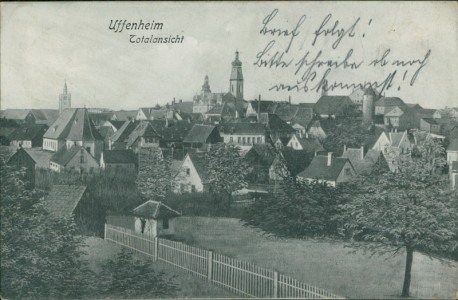 Uffenheim
Totalansicht
Brief folgt!
Bitte schreibe ob noch
auskommst!